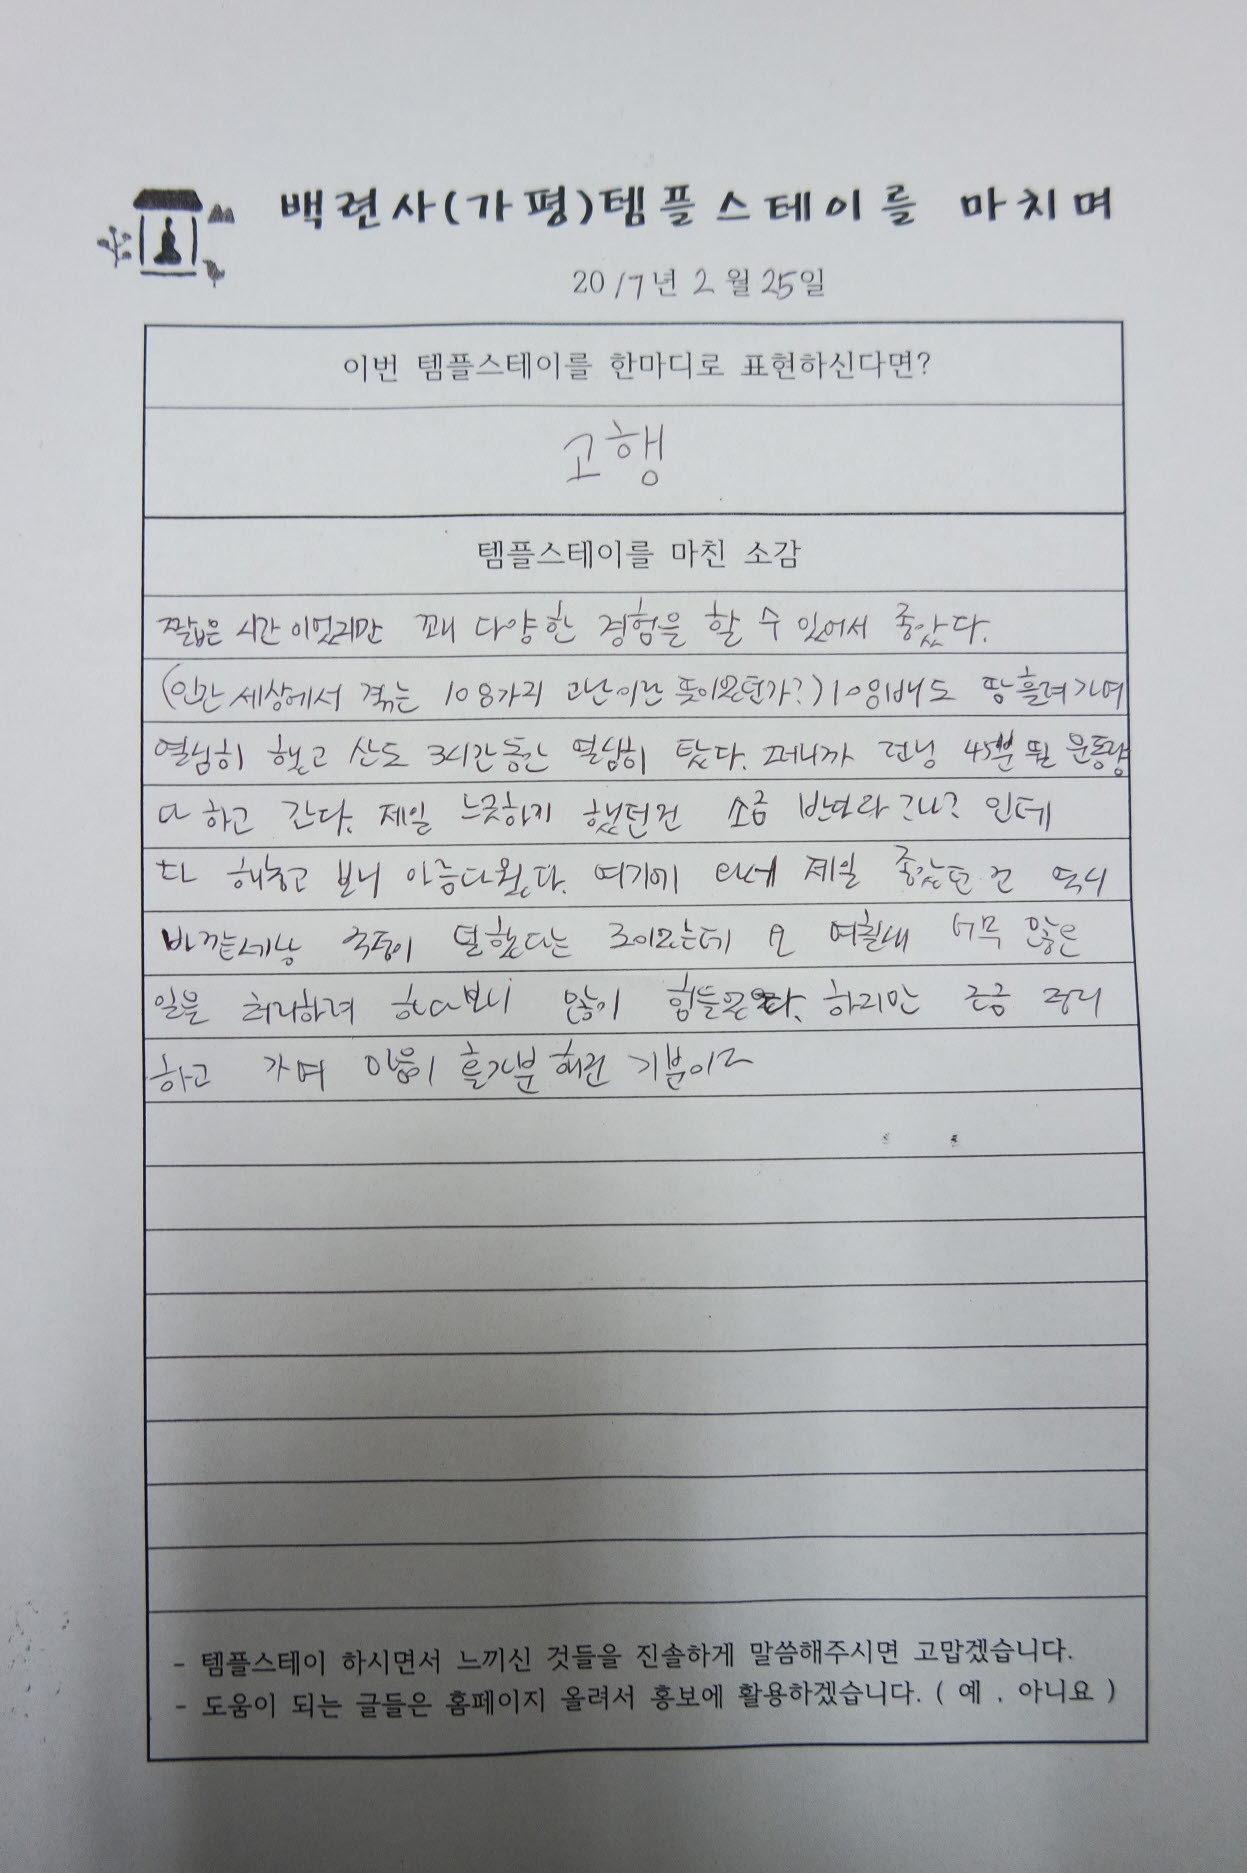 백련사(가평)템플스테이를 마치며
2017년 2월 25일
이번 템플스테이를 한마디로 표현하신다면?
고행
템플스테이를 마친 소감
짧은 시간이었지만 꽤 다양한 경험을 할 수 있어서 좋았다.
(인간 세상에서 겪는 108가지 고난이란 뜻이었던가?) 108배도 땀흘려가며
열심히 했고 산도 3시간동안 열심히 탔다. 그러니까 런닝 45분 뛸 운동량
다 하고 간다. 제일 했던건 소금 만다라 그리기? 인데
다 해놓고 보니 아름다웠다. 여기에 와서 제일 좋았던 건 역시
바깥세상 일을 처리하려 하다보니 많이 힘들었다. 하지만 조금 정리
하고 가며 마음이 홀가분해진 기분이다
- 템플스테이 하시면서 느끼신 것들을 진솔하게 말씀해주시면 고맙겠습니다.
- 도움이 되는 글들은 홈페이지 올려서 홍보에 활용하겠습니다. ( 예 , 아니요 )